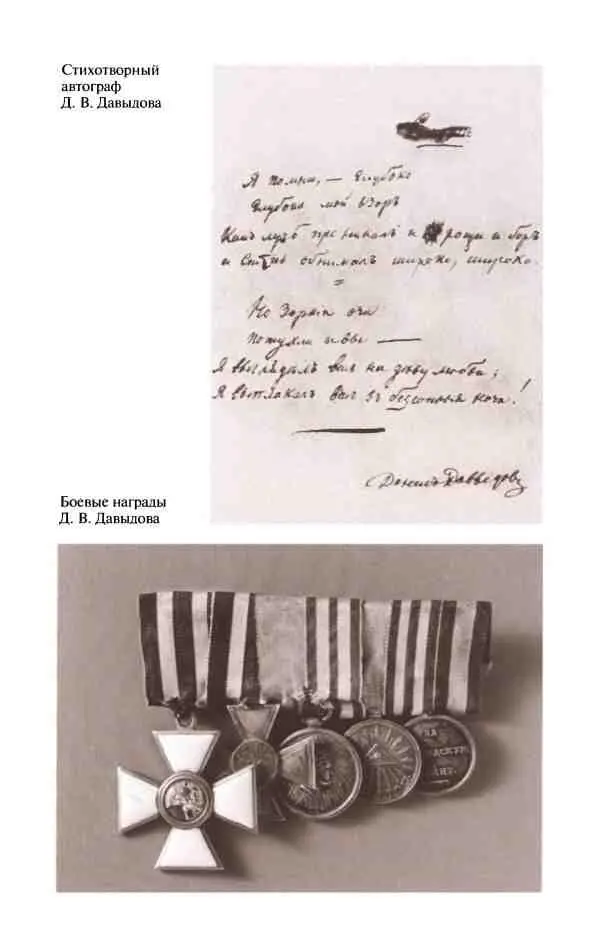 Стихотворный
автограф
Д. В. Давыдова
Я помню, — глубоко
Глубоко мой взоръ
Какъ лучь проникалъ и рощи и боръ
и степь обнималъ широко, широко.
Но Зоркія очи
Потухли и вы —
Я выглядѣлъ васъ на дѣву любви;
Я выплакалъ васъ въ безсонныя ночи!
Денисъ Давыдовъ
Боевые награды
Д. В. Давыдова